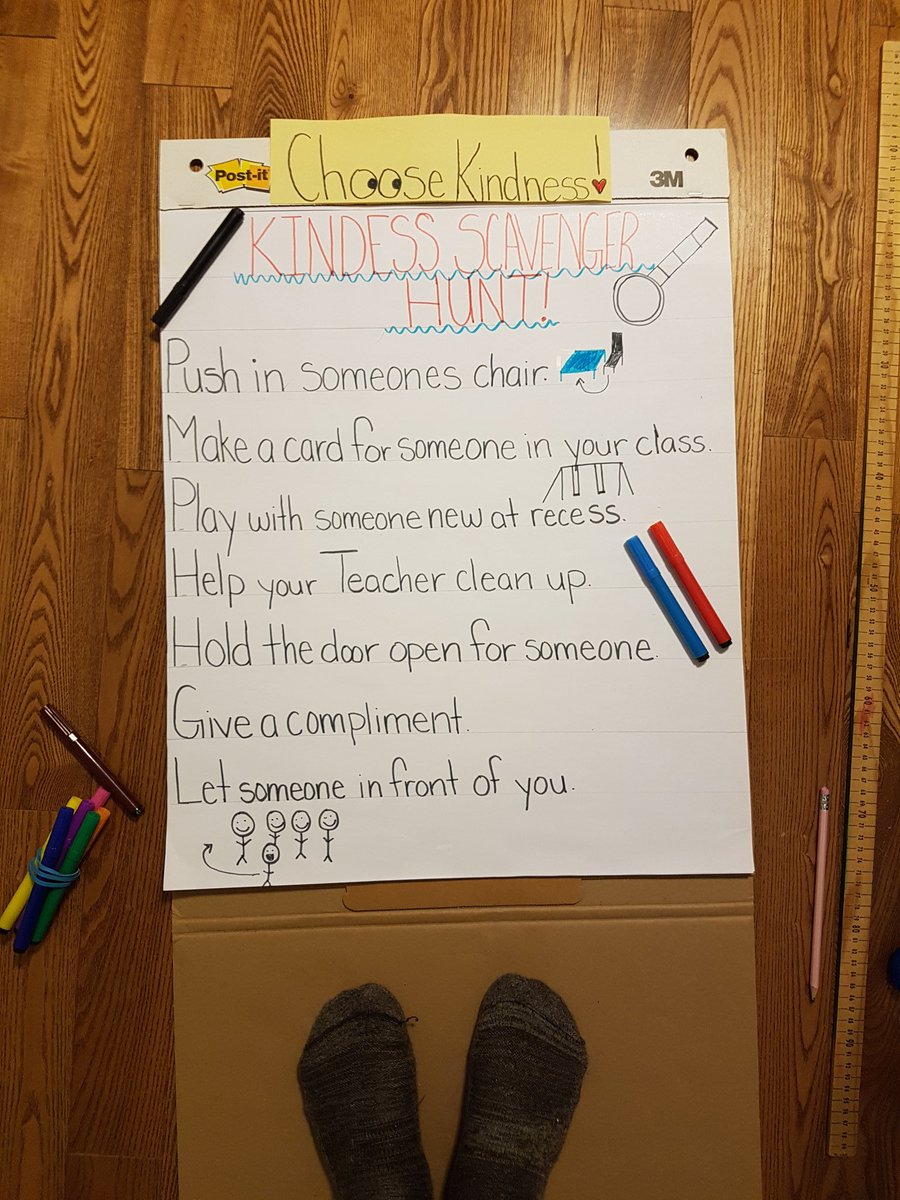 Choose Kindness!
Post-it
3M
KINDESS SCAVENGER
HUNT!
Push in someones chair.
Make a card for someone in your class.
Play with someone new at recess.
Help your Teacher clean up.
Hold the door open for someone.
Give a compliment.
Let someone in front of you.